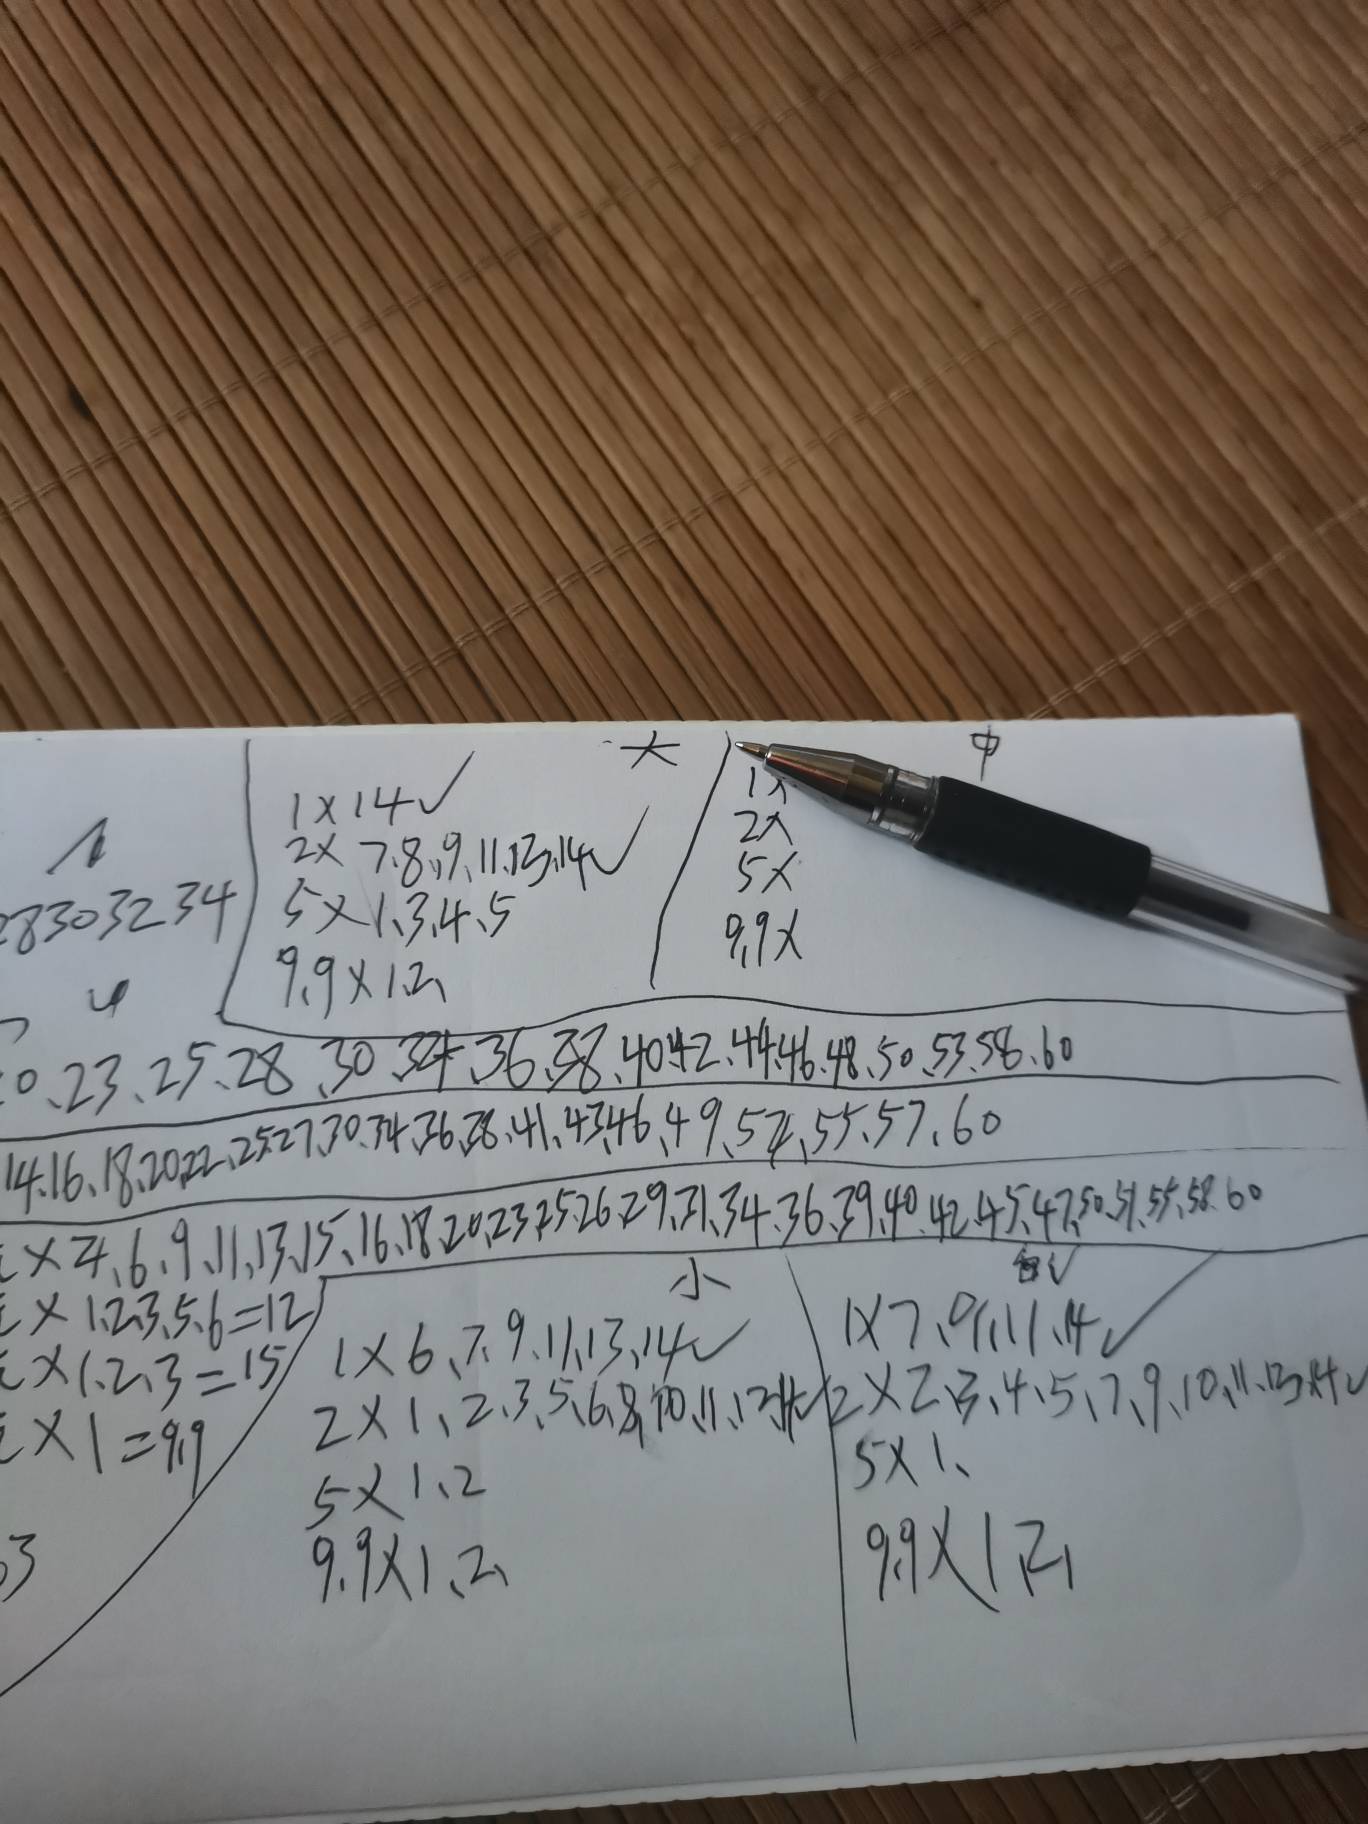 大
1×14✓
2× 7、8、9、11、13、14✓
5×1、3、4、5
9.9×1、2、
中
1×
2×
5×
9.9×
28303234
、23、25、28、30、34、36、38、40、42、44、46、48、50、53、58、60
14、16、18、20、22、25、27、30、34、36、38、41、43、46、49、52、55、57、60
×4、6、9、11、13、15、16、18、20、23、25、26、29、31、34、36、39、40、42、45、47、50、51、55、58、60
×1、2、3、5、6=12
×1、2、3=15
×1=9.9
小
1×6、7、9、11、13、14✓
2×1、2、3、5、6、8、10、11、13、14✓
5×1、2
9.9×1、2、
1×7、9、11、14✓
2×2、3、4、5、7、9、10、11、13、14✓
5×1、
9.9×1、2、